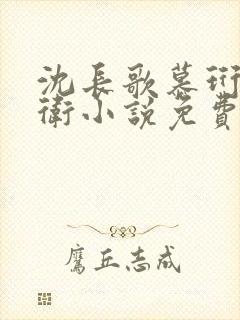 沈長歌慕珩
衛小說免費
鷹丘志成